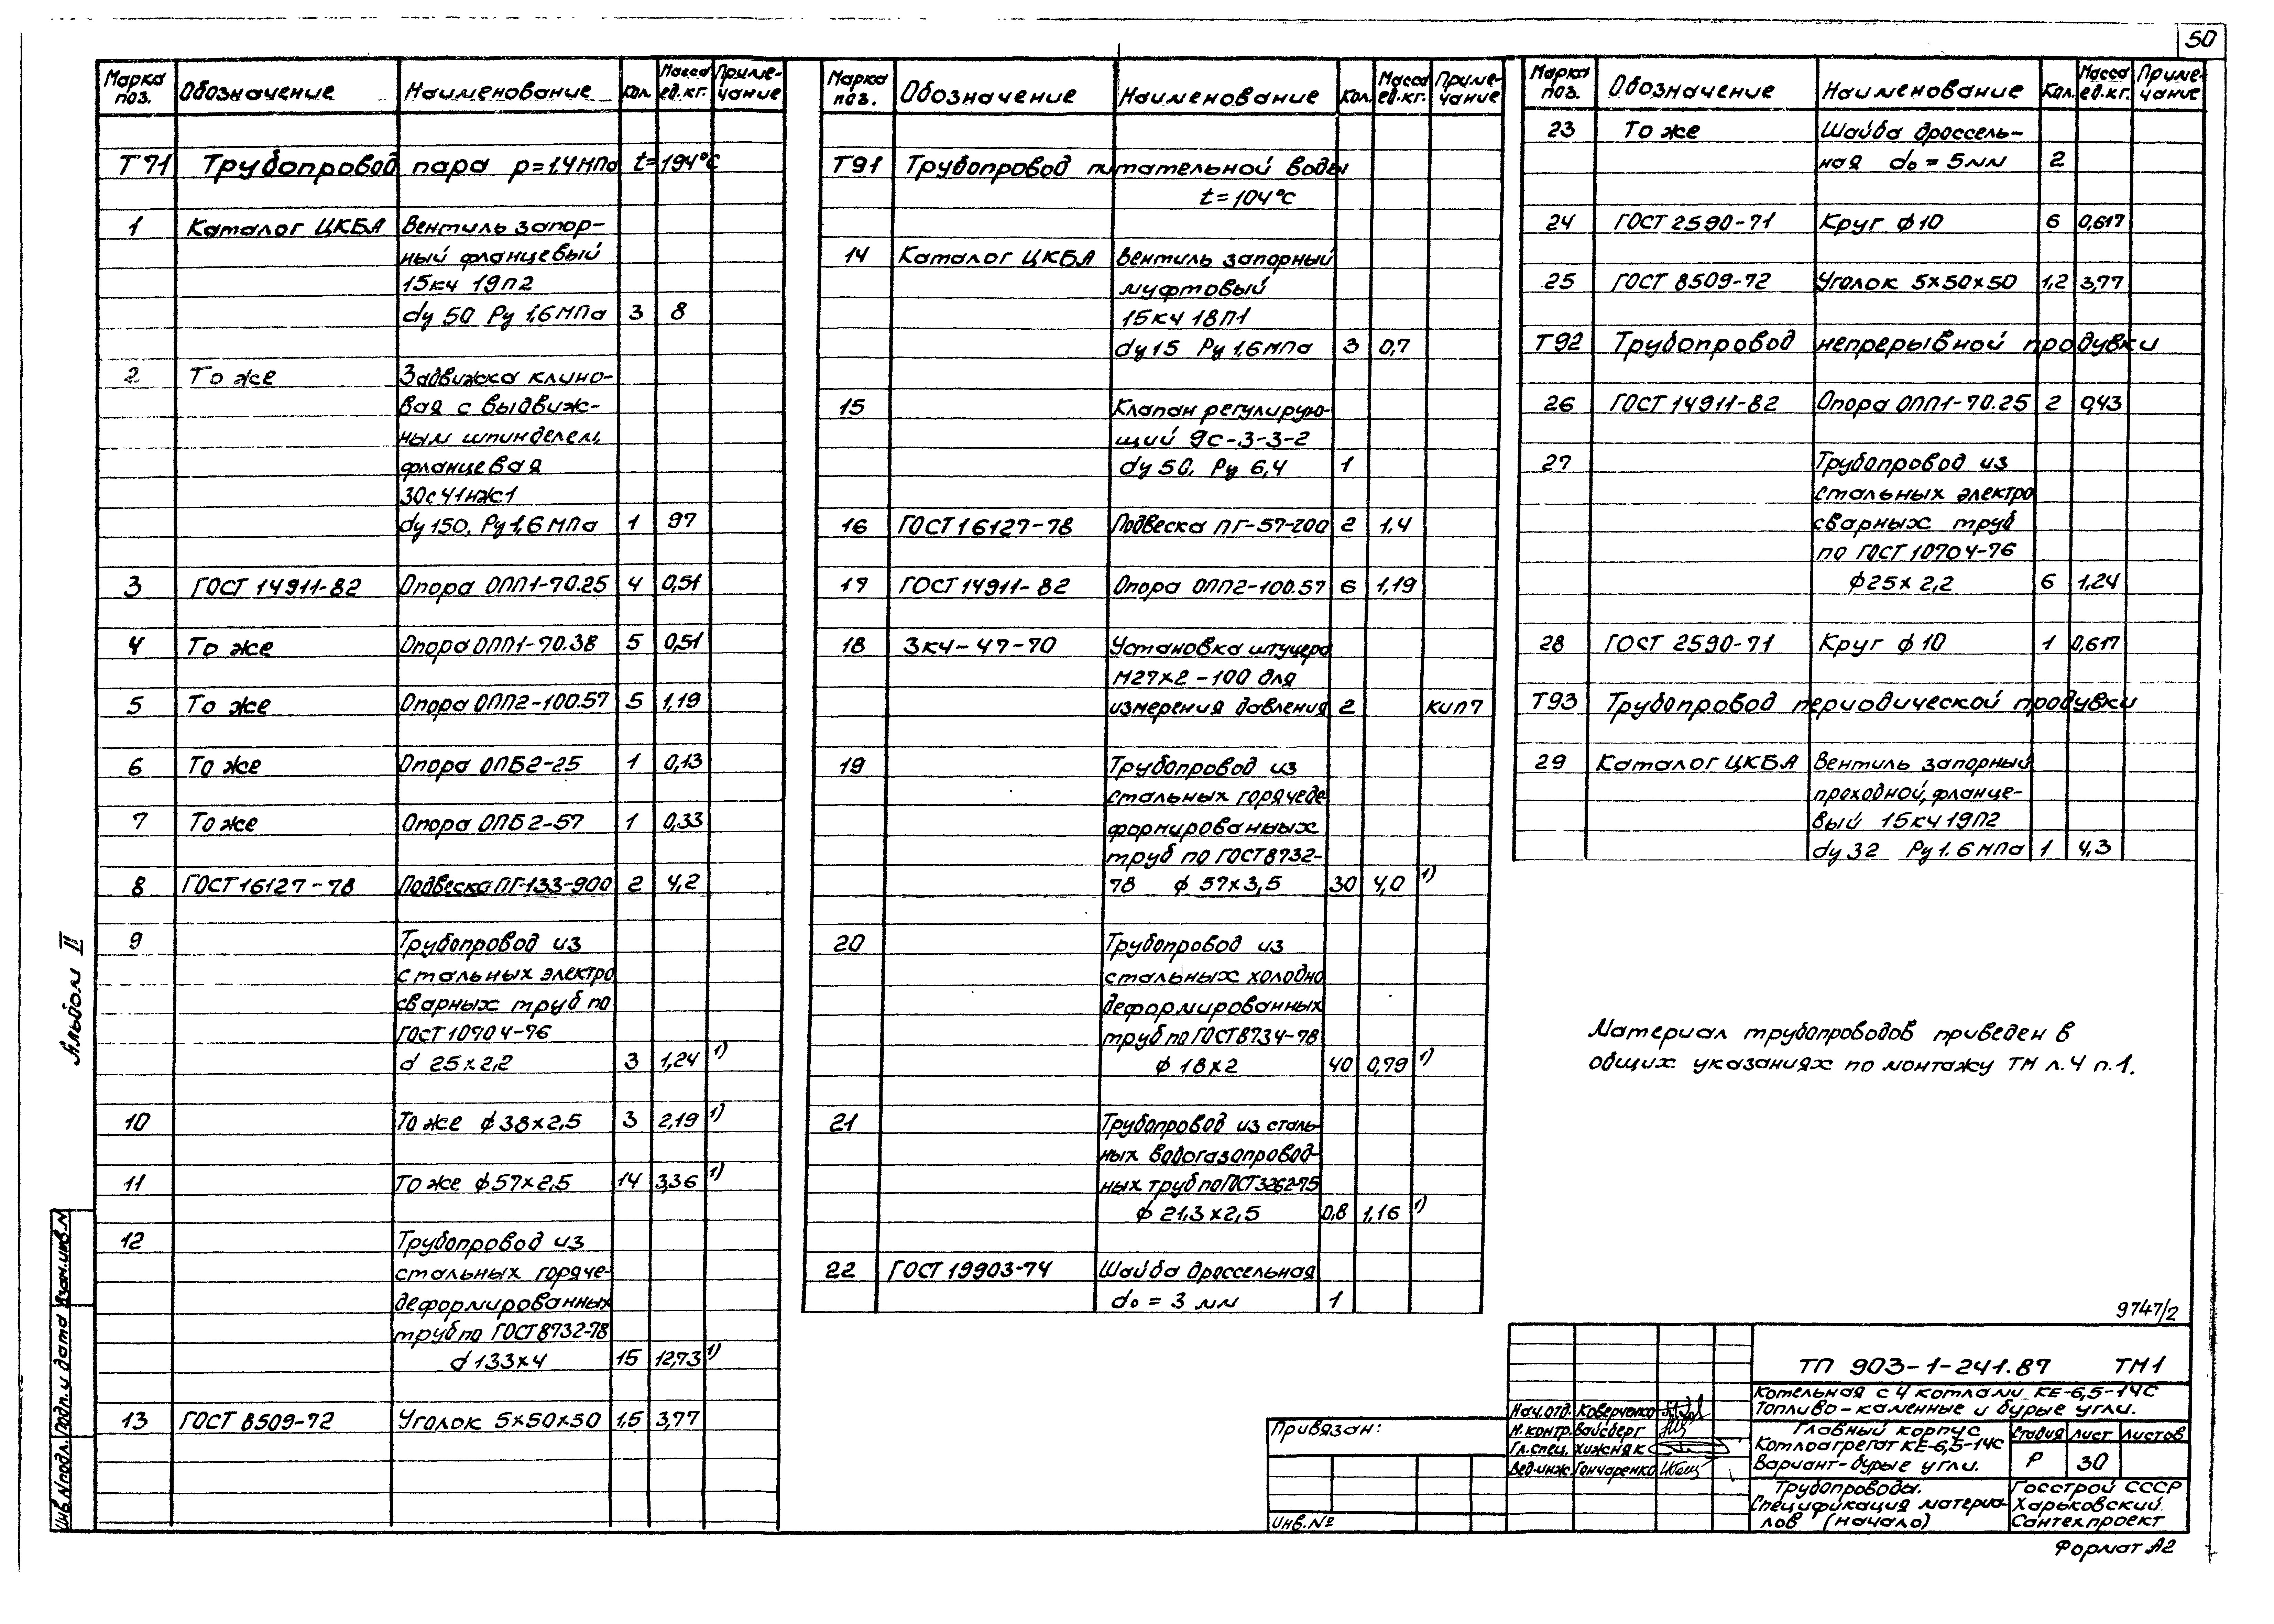 50
Марка поз. Обозначение Наименование Кол. Масса ед.кг. Приме-чание
Т71 Трубопровод пара р=1,4МПа t=194°С
1 Каталог ЦКБА Вентиль запор-
ный фланцевый
15кч 19п2
dy 50 Ру 1,6МПа 3 8
2 То же Задвижка клино-
вая с выдвиж-
ным шпинделем,
фланцевая
30с41нж1
dy150, Ру1,6МПа 1 97
3 ГОСТ 14911-82 Опора ОПП1-70.25 4 0,51
4 То же Опора ОПП1-70.38 5 0,51
5 То же Опора ОПП2-100.57 5 1,19
6 То же Опора ОПБ2-25 1 0,13
7 То же Опора ОПБ2-57 1 0,33
8 ГОСТ 16127-78 Подвеска ПГ-133-900 2 4,2
9 Трубопровод из
стальных электро
сварных труб по
ГОСТ 10704-76
d 25×2,2 3 1,24 1)
10 То же ф38×2,5 3 2,19 1)
11 То же ф57×2,5 14 3,36 1)
12 Трубопровод из
стальных горяче-
деформированных
труб по ГОСТ8732-78
d 133×4 15 12,73 1)
13 ГОСТ 8509-72 Уголок 5×50×50 1,5 3,77
Марка поз. Обозначение Наименование Кол. Масса ед.кг. Приме-чание
Т91 Трубопровод питательной воды
t=104°С
14 Каталог ЦКБА Вентиль запорный
муфтовый
15кч 18п1
dy15 Ру 1,6МПа 3 0,7
15 Клапан регулирую-
щий 9с-3-3-2
dy 50, Ру 6,4 1
16 ГОСТ 16127-78 Подвеска ПГ-57-200 2 1,4
17 ГОСТ 14911-82 Опора ОПП2-100.57 6 1,19
18 ЗК4-47-70 Установка штуцера
М27×2-100 для
измерения давления 2 КИП7
19 Трубопровод из
стальных горячеде
формированных
труб по ГОСТ8732-
78 ф 57×3,5 30 4,0 1)
20 Трубопровод из
стальных холодно
деформированных
труб по ГОСТ8734-78
ф 18×2 40 0,79 1)
21 Трубопровод из сталь-
ных водогазопровод-
ных труб по ГОСТ3262-75
ф 21,3×2,5 0,8 1,16 1)
22 ГОСТ 19903-74 Шайба дроссельная
d₀ = 3 мм 1
Марка поз. Обозначение Наименование Кол. Масса ед.кг. Приме-чание
23 То же Шайба дроссель-
ная d₀ = 5мм 2
24 ГОСТ 2590-71 Круг ф10 6 0,617
25 ГОСТ 8509-72 Уголок 5×50×50 1,2 3,77
Т92 Трубопровод непрерывной продувки
26 ГОСТ 14911-82 Опора ОПП1-70.25 2 0,43
27 Трубопровод из
стальных электро
сварных труб
по ГОСТ 10704-76
ф25×2,2 6 1,24
28 ГОСТ 2590-71 Круг ф10 1 0,617
Т93 Трубопровод периодической продувки
29 Каталог ЦКБА Вентиль запорный
проходной, фланце-
вый 15кч19п2
dy 32 Ру1.6МПа 1 4,3
Материал трубопроводов приведен в
общих указаниях по монтажу ТМ л.4 п.1.
Альбом II
Инв.№подл. Подп. и дата Взам.инв.№
9747/2
ТП 903-1-241.87 ТМ1
Котельная с 4 котлами КЕ-6,5-14С
Топливо-каменные и бурые угли.
Нач.отд. Коверченко
Н.контр. Вайсберг
Гл.спец. Хижняк
Вед.инж. Гончаренко
Главный корпус
Котлоагрегат КЕ-6,5-14С
Вариант-бурые угли.
Стадия Лист Листов
Р 30
Трубопроводы.
Спецификация материа-
лов (начало)
Госстрой СССР
Харьковский
Сантехпроект
Привязан:
Инв.№
Формат А2